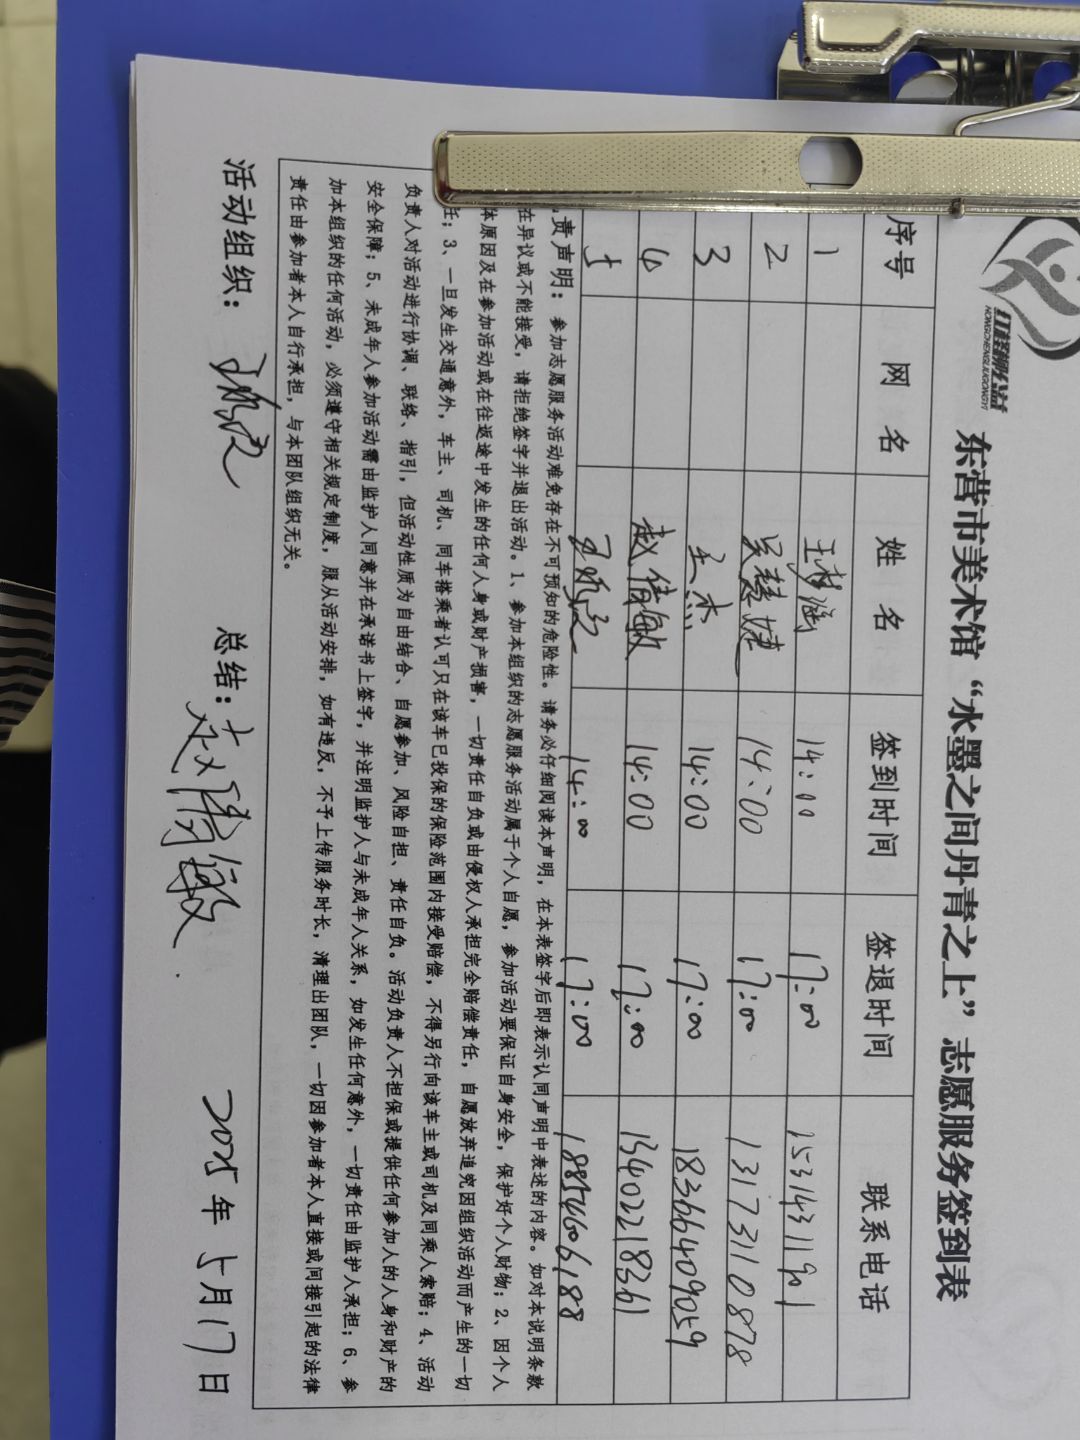 HONGCHENGLIUGONGYI
东营市美术馆“水墨之间丹青之上”志愿服务签到表
序号 网名 姓名 签到时间 签退时间 联系电话
1 14:00 17:00 15314311901
2 吴慧婕 14:00 17:00 13173110878
3 王杰 14:00 17:00 18366409059
4 赵倩敏 14:00 17:00 13402218361
5 14:00 17:00 18854606188
责声明：参加志愿服务活动难免存在不可预知的危险性。请务必仔细阅读本声明，在本表签字后即表示认同声明中表述的内容。如对本说明条款
在异议或不能接受，请拒绝签字并退出活动。1、参加本组织的志愿服务活动属于个人自愿，参加活动要保证自身安全，保护好个人财物；2、因个人
体原因及在参加活动或在往返途中发生的任何人身或财产损害，一切责任自负或由侵权人承担完全赔偿责任，自愿放弃追究因组织活动而产生的一切
任；3、一旦发生交通意外，车主、司机、同车搭乘者认可只在该车已投保的保险范围内接受赔偿，不得另行向该车主或司机及同乘人索赔；4、活动
负责人对活动进行协调、联络、指引，但活动性质为自由结合、自愿参加、风险自担、责任自负。活动负责人不担保或提供任何参加人的人身和财产的
安全保障；5、未成年人参加活动需由监护人同意并在承诺书上签字，并注明监护人与未成年人关系，如发生任何意外，一切责任由监护人承担；6、参
加本组织的任何活动，必须遵守相关规定制度，服从活动安排，如有违反，不予上传服务时长，清理出团队，一切因参加者本人直接或间接引起的法律
责任由参加者本人自行承担，与本团队组织无关。
活动组织： 总结：赵倩敏 2025年5月17日